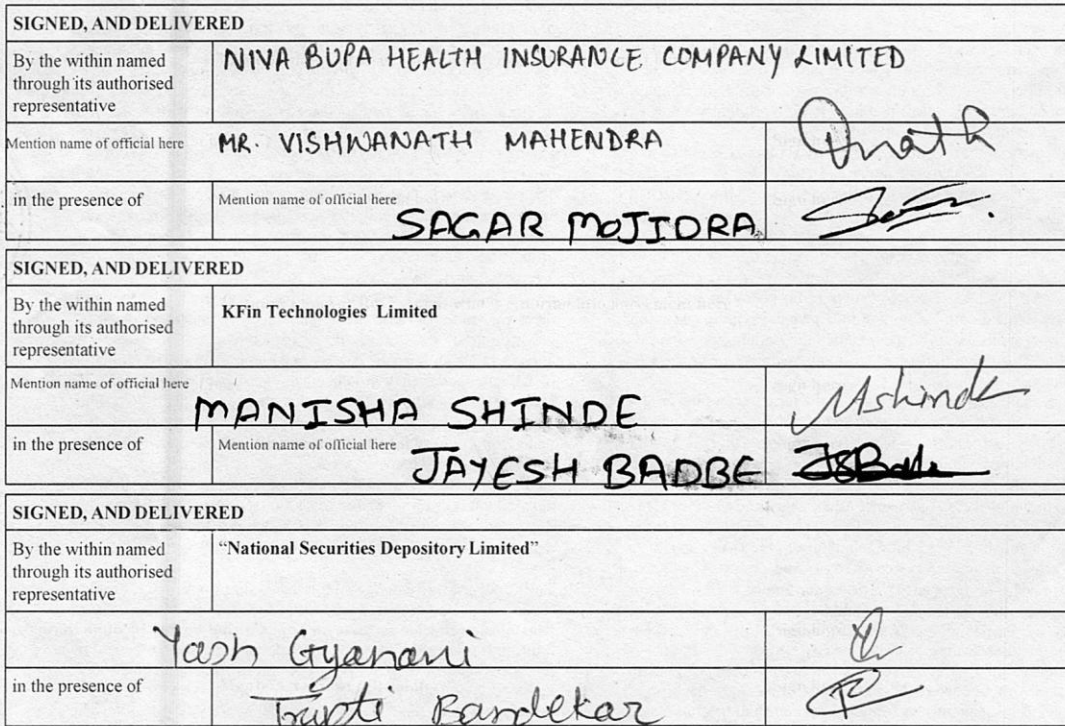 SIGNED, AND DELIVERED
By the within named
through its authorised
representative
NIVA BUPA HEALTH INSURANCE COMPANY LIMITED
Mention name of official here
MR. VISHWANATH MAHENDRA
in the presence of
Mention name of official here
SAGAR MOJIDRA
SIGNED, AND DELIVERED
By the within named
through its authorised
representative
KFin Technologies Limited
Mention name of official here
MANISHA SHINDE
Mshinde
in the presence of
Mention name of official here
JAYESH BADBE
SIGNED, AND DELIVERED
By the within named
through its authorised
representative
“National Securities Depository Limited”
Yash Gyanani
in the presence of
Trupti Bandekar